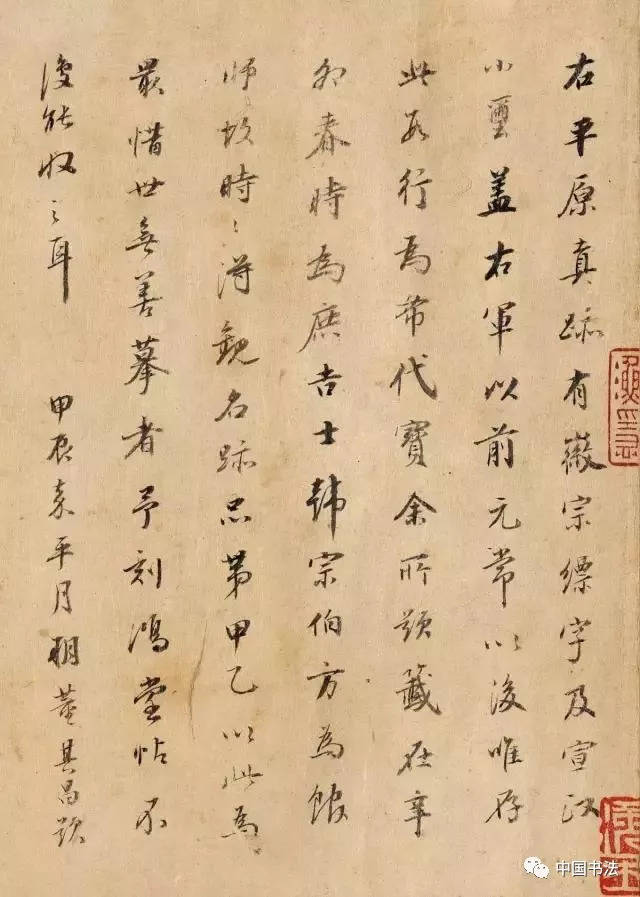 右平原真跡有徽宗縹字及宣政
小璽蓋右軍以前元常以後唯存
此數行為希代寶余所題籤在辛
卯春時為庶吉士韓宗伯方為館
師故時〻得觀名跡品第甲乙以此為
最惜世無善摹者予刻鴻堂帖不
復能收之耳 甲辰嘉平月朔董其昌題
中国书法